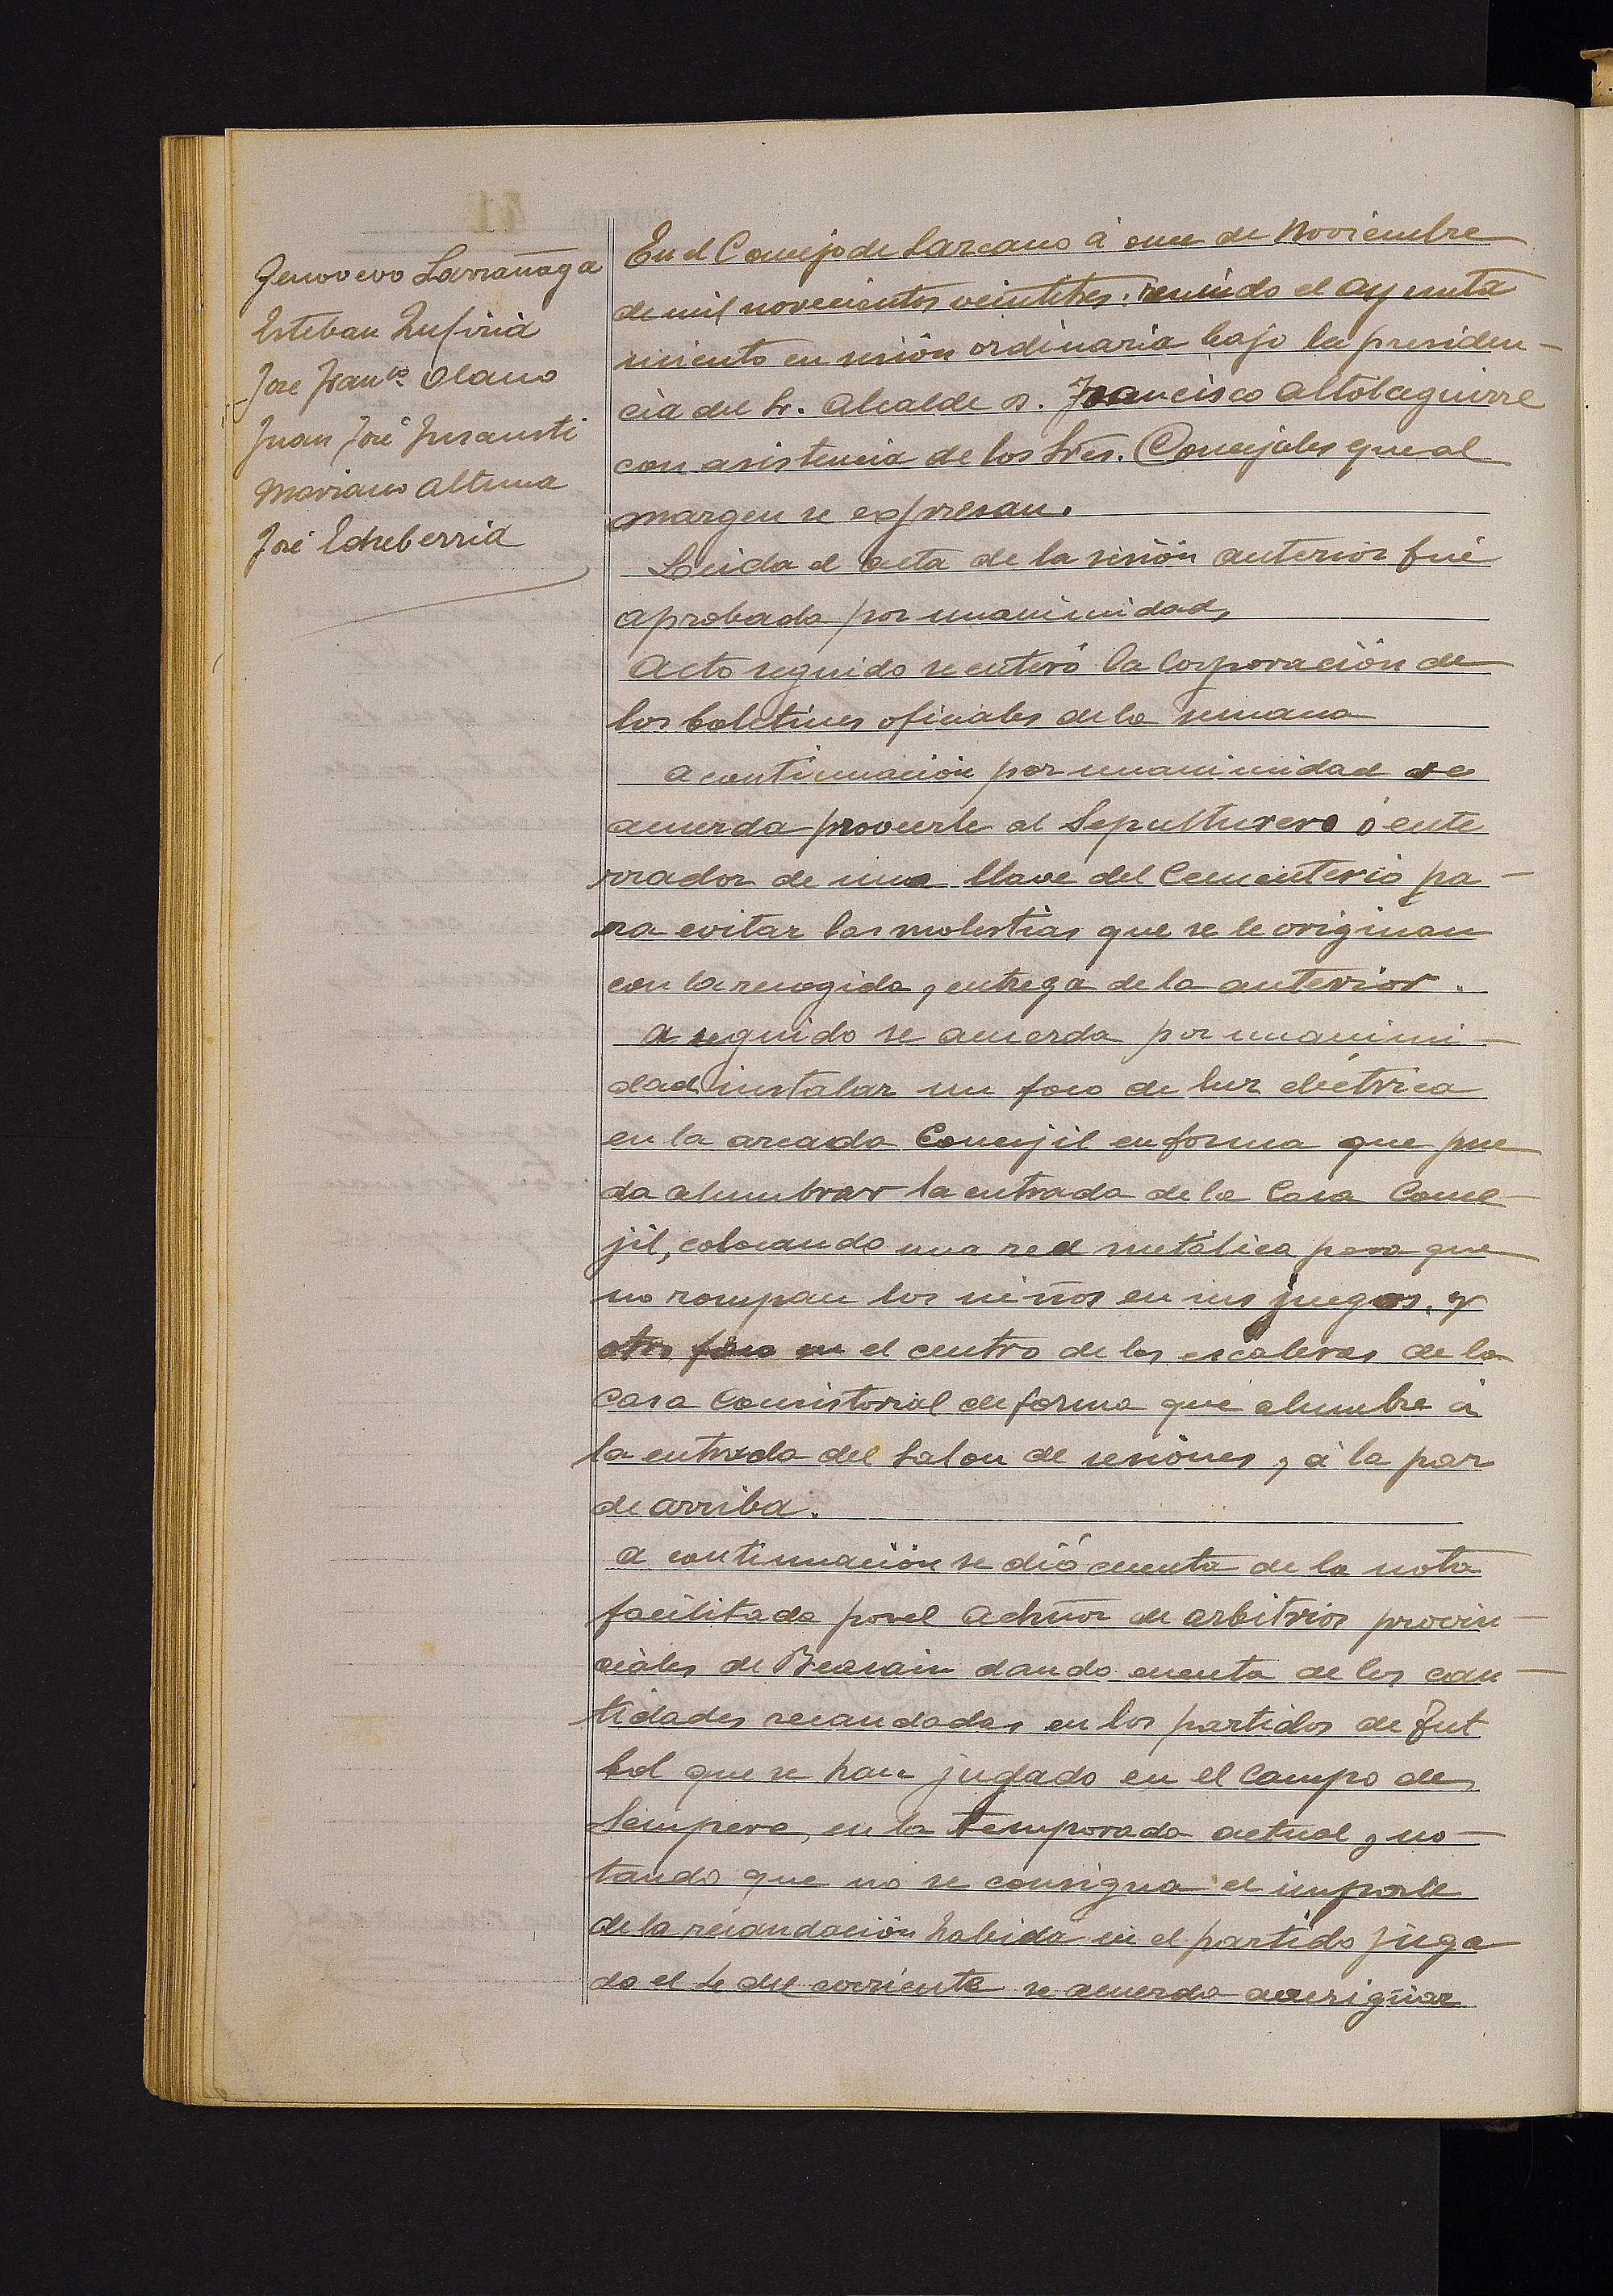 Genovevo Larrañaga
Esteban Zufiria
Jose Franco Olano
Juan José Insausti
Mariano Altuna
José Echeberria
En el Concejo de Lazcano á once de Noviembre
de mil novecientos veintitres, reunido el Ayunta
miento en sesión ordinaria bajo la presiden-
cia del Sr. Alcalde D. Francisco Altolaguirre
con asistencia de los Sres. Concejales que al
margen se expresan.
Leida el acta de la sesión anterior fué
aprobada por unanimidad,
Acto seguido se enteró la Corporación de
los boletines oficiales de la semana
A continuación por unanimidad se
acuerda proveerle al Sepulturero ó ente
rrador de una llave del Cementerio pa-
ra evitar las molestias que se le originan
con la recogida y entrega de la anterior.
A seguido se acuerda por unanimi-
dad instalar un foco de luz eléctrica
en la arcada Concejil en forma que pue
da alumbrar la entrada de la Casa Conce-
jil, colocando una red metálica para que
no rompan los niños en sus juegos, y
otro foco en el centro de las escaleras de la
Casa Consistorial de forma que alumbre á
la entrada del Salon de sesiones y á la par
de arriba.
A continuación se dió cuenta de la nota
facilitada por el Admor de arbitrios provin-
ciales de Beasain dando cuenta de las can-
tidades recaudadas en los partidos de fut
bol que se han jugado en el Campo de
Sempere, en la temporada actual y no-
tando que no se consigna el importe
de la recaudación habida en el partido juga
do el 4 del corriente se acuerda averiguar